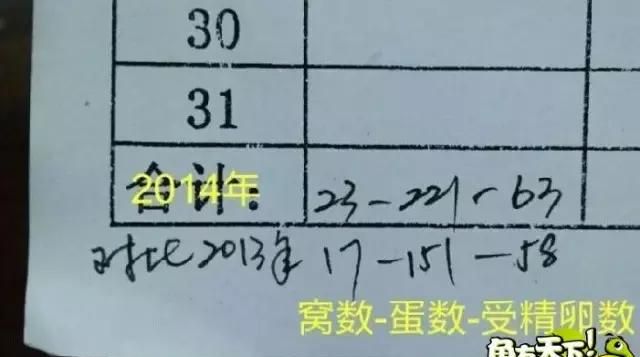 30
31
合计: 23-221-63
2014年
对比2013年 17-151-58
窝数-蛋数-受精卵数
龟有天下!